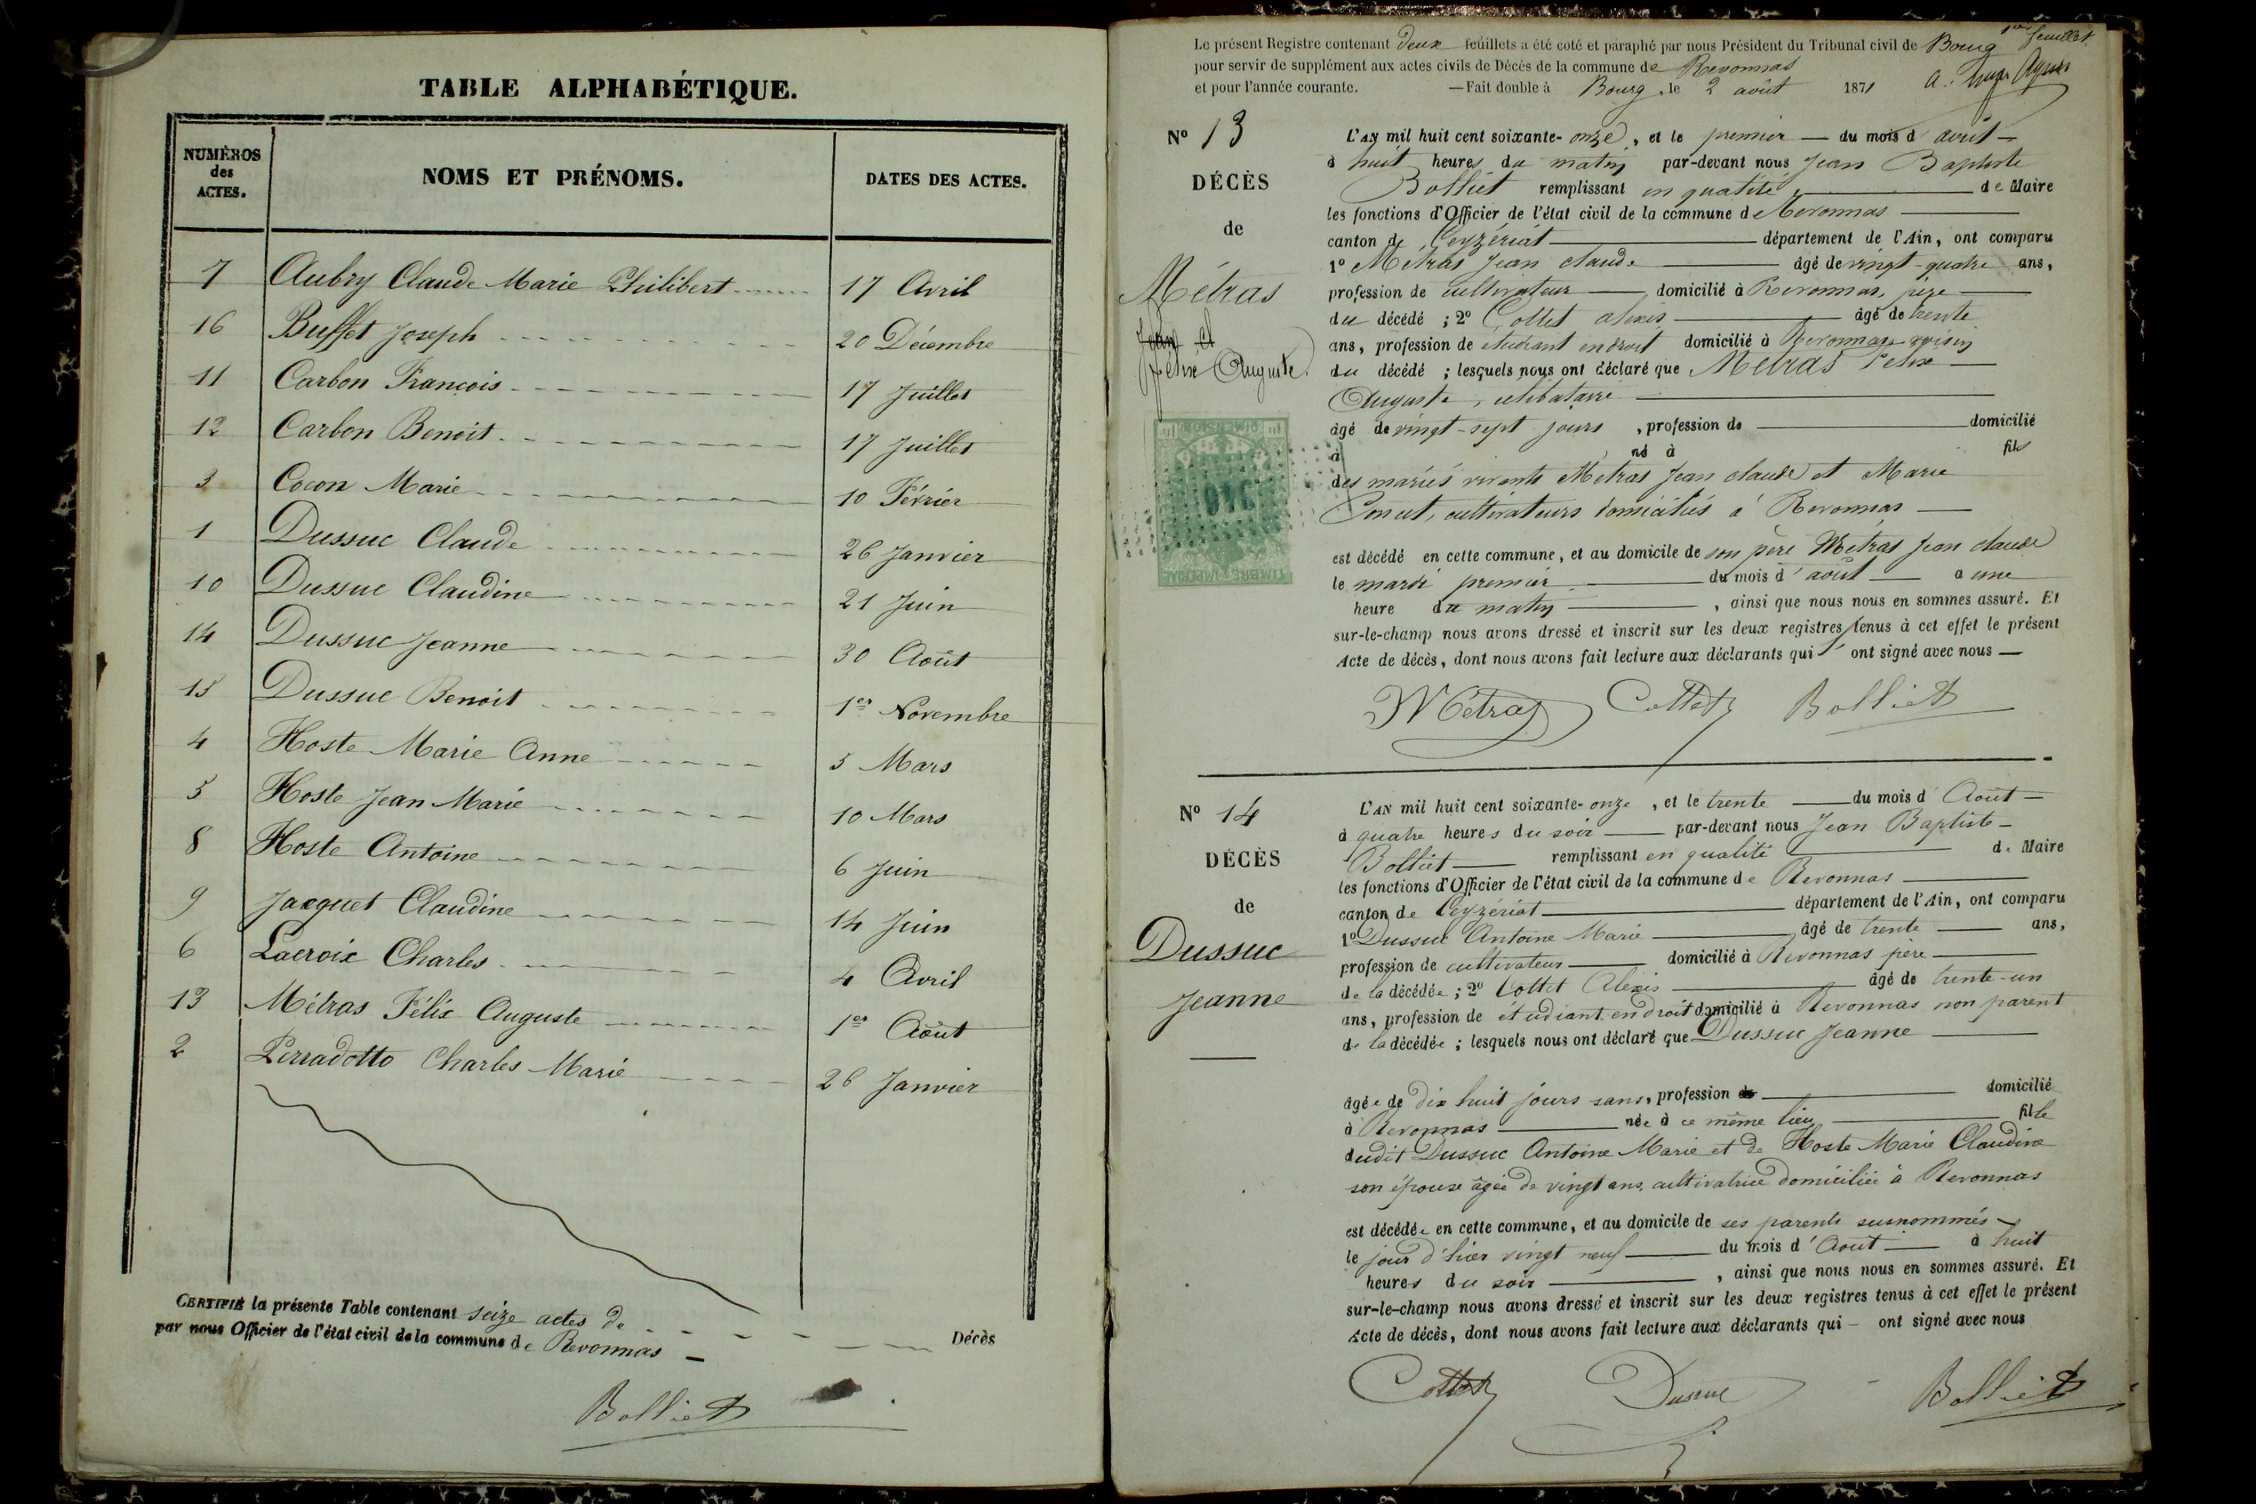 TABLE ALPHABÉTIQUE.
NUMÉROS des ACTES.
NOMS ET PRÉNOMS.
DATES DES ACTES.
7 Aubry Claude Marie Philibert 17 Avril
16 Buffet Joseph 20 Décembre
11 Carbon François 17 Juillet
12 Carbon Benoit 17 Juillet
3 Cocon Marie 10 Février
1 Dussuc Claude 26 Janvier
10 Dussuc Claudine 21 Juin
14 Dussuc Jeanne 30 Août
15 Dussuc Benoit 1er Novembre
4 Hoste Marie Anne 5 Mars
5 Hoste Jean Marie 10 Mars
8 Hoste Antoine 6 Juin
9 Jacquet Claudine 14 Juin
6 Lacroix Charles 4 Avril
13 Métras Félix Auguste 1er Août
2 Perradotto Charles Marie 26 Janvier
CERTIFIÉ la présente Table contenant seize actes de Décès
par nous Officier de l'état civil de la commune de Revonnas
Bolliet
1er feuillet
Le présent Registre contenant deux feuillets a été coté et paraphé par nous Président du Tribunal civil de Bourg
pour servir de supplément aux actes civils de Décès de la commune de Revonnas
et pour l'année courante. — Fait double à Bourg, le 2 août 1871
N° 13
DÉCÈS
de
Métras
Jean et
Félix Auguste
L'AN mil huit cent soixante-onze, et le premier du mois d'août
à huit heures du matin par-devant nous Jean Baptiste
Bolliet remplissant en qualité de Maire
les fonctions d'Officier de l'état civil de la commune de Revonnas
canton de Ceyzériat département de l'Ain, ont comparu
1° Métras Jean Claude âgé de vingt-quatre ans,
profession de cultivateur domicilié à Revonnas, père
du décédé ; 2° Collet Alexis âgé de trente
ans, profession de étudiant en droit domicilié à Revonnas voisin
du décédé ; lesquels nous ont déclaré que Métras Félix
Auguste, célibataire
âgé de vingt-sept jours, profession de domicilié
à né à fils
des mariés vivants Métras Jean Claude et Marie
cultivateurs domiciliés à Revonnas
est décédé en cette commune, et au domicile de son père Métras Jean Claude
le mardi premier du mois d'août à une
heure du matin, ainsi que nous nous en sommes assuré. Et
sur-le-champ nous avons dressé et inscrit sur les deux registres tenus à cet effet le présent
Acte de décès, dont nous avons fait lecture aux déclarants qui ont signé avec nous
Métras Collet Bolliet
DIMENSION
TIMBRE IMPÉRIAL
N° 14
DÉCÈS
de
Dussuc
Jeanne
L'AN mil huit cent soixante-onze, et le trente du mois d'Août
à quatre heures du soir par-devant nous Jean Baptiste
Bolliet remplissant en qualité de Maire
les fonctions d'Officier de l'état civil de la commune de Revonnas
canton de Ceyzériat département de l'Ain, ont comparu
1° Dussuc Antoine Marie âgé de trente ans,
profession de cultivateur domicilié à Revonnas père
de la décédée ; 2° Collet Alexis âgé de trente-un
ans, profession de étudiant en droit domicilié à Revonnas non parent
de la décédée ; lesquels nous ont déclaré que Dussuc Jeanne
âgée de dix huit jours sans, profession de domicilié
à Revonnas née à ce même lieu fille
dudit Dussuc Antoine Marie et de Hoste Marie Claudine
son épouse âgée de vingt ans, cultivatrice domiciliée à Revonnas
est décédée en cette commune, et au domicile de ses parents susnommés
le jour d'hier vingt neuf du mois d'Août à huit
heures du soir, ainsi que nous nous en sommes assuré. Et
sur-le-champ nous avons dressé et inscrit sur les deux registres tenus à cet effet le présent
Acte de décès, dont nous avons fait lecture aux déclarants qui ont signé avec nous
Collet Dussuc Bolliet